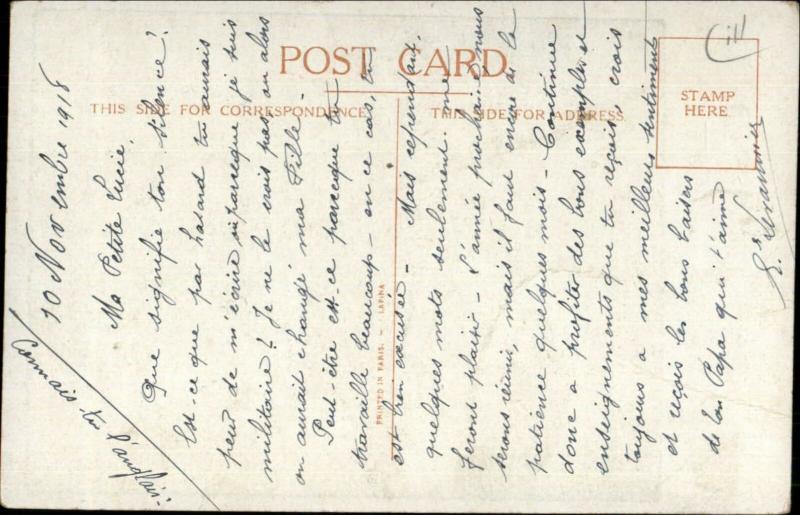 POST CARD
THIS SIDE FOR CORRESPONDENCE
THIS SIDE FOR ADDRESS
STAMP
HERE
PRINTED IN PARIS. — LAPINA
10 Novembre 1918
Ma Petite Lucie.
Que signifie ton silence?
Est-ce que par hasard tu aurais
peur de m'écrire parceque je suis
militaire? Je ne le crois pas ou alors
on aurait changé ma Fille.
Peut-être est-ce parceque tu
travaille beaucoup - en ce cas, tu
est bien excusée - Mais cependant.
quelques mots seulement me
feront plaisir - L'année prochaine nous
serons réunis, mais il faut encore de la
patience quelques mois - Continue
donc a profiter des bons exemples et
enseignements que tu reçois, crois
toujours a mes meilleurs sentiments
et reçois les bons baisers
de ton Papa qui t'aime
Connais tu l'anglais?